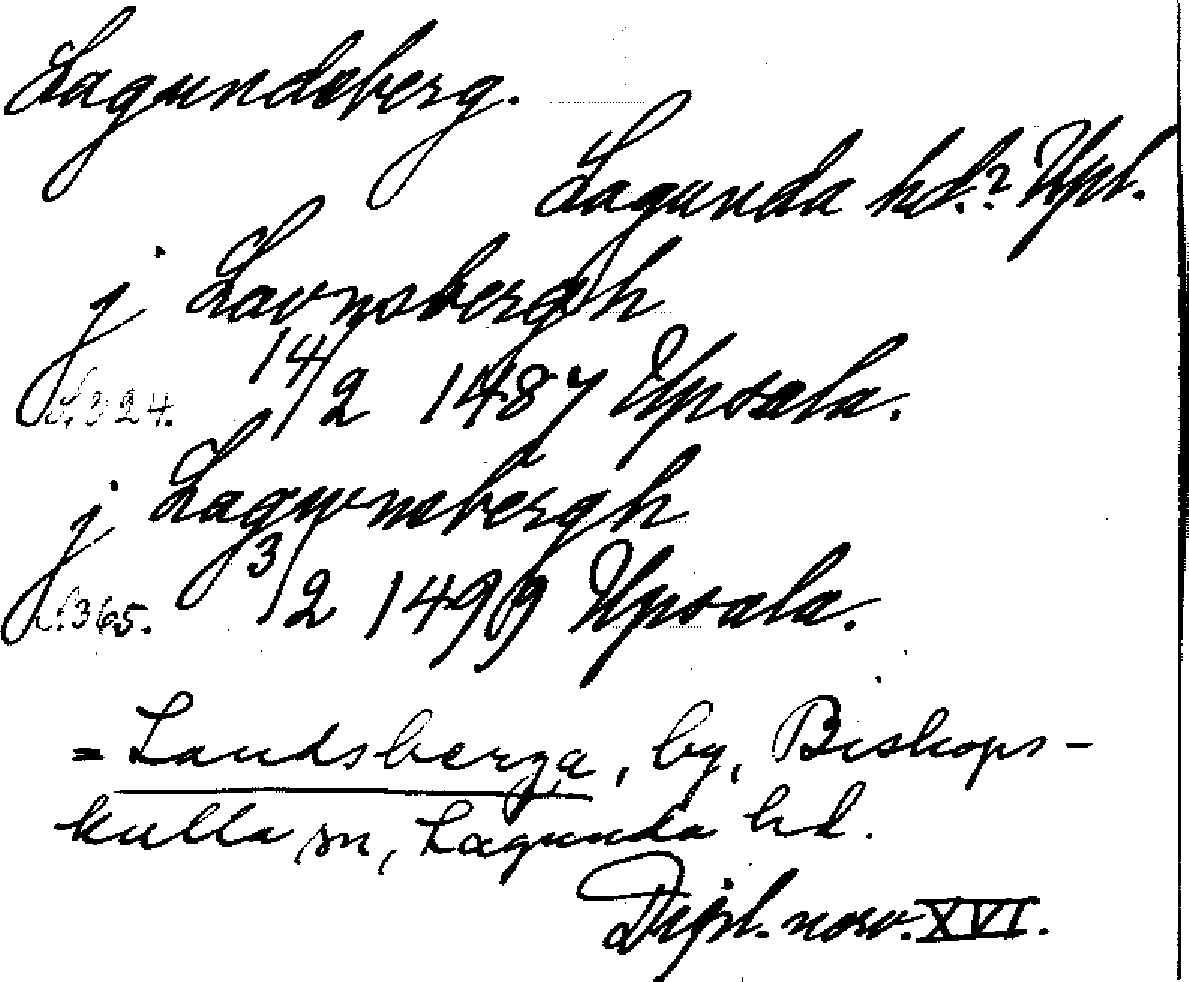 Lagundsberg.
Lagunda hd.? Upl.
j Lavnsbergh
s. 324. 14/2 1487 Upsala.
j Lagwnsbergh
s. 365. 3/2 1499 Upsala.
= Landsberga, by, Biskops-
kulla sn, Lagunda hd.
Dipl. norv. XVI.